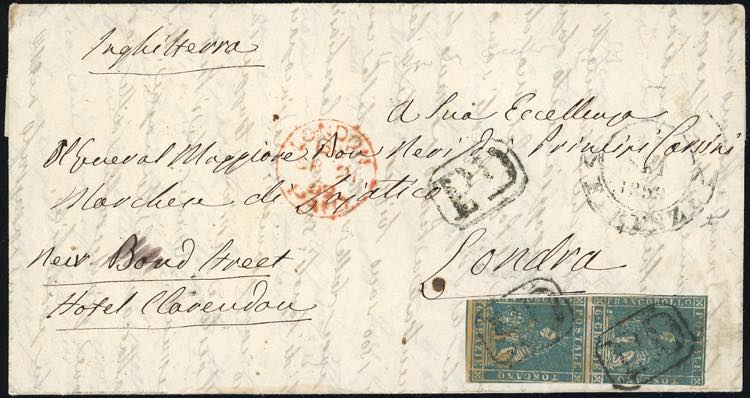 Inghilterra
A Sua Eccellenza
Il General Maggiore Don Neri dei Principi Corsini
Marchese di Lajatico
New Bond Street
Hotel Clarendon
Londra
LONDON
PD
FIRENZE
1859
FRANCOBOLLO
POSTALE
TOSCANO
POSTALE
6 CRAZIE
TOSCANO
PD